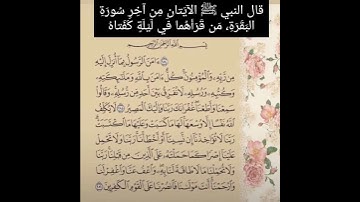 قال النبي ﷺ الآيَتان مِن آخِرِ سُورَةِ
البَقَرَةِ، مَن قَرَأَهُما في لَيلَةٍ كَفَتاهُ
بِسْمِ اللَّهِ الرَّحْمَٰنِ الرَّحِيمِ
ءَامَنَ الرَّسُولُ بِمَا أُنزِلَ إِلَيْهِ
مِن رَّبِّهِ وَالْمُؤْمِنُونَ كُلٌّ ءَامَنَ بِاللَّهِ وَمَلَٰئِكَتِهِ
وَكُتُبِهِ وَرُسُلِهِ لَا نُفَرِّقُ بَيْنَ أَحَدٍ مِّن رُّسُلِهِ وَقَالُوا
سَمِعْنَا وَأَطَعْنَا غُفْرَانَكَ رَبَّنَا وَإِلَيْكَ الْمَصِيرُ ٢٨٥ لَا يُكَلِّفُ
اللَّهُ نَفْسًا إِلَّا وُسْعَهَا لَهَا مَا كَسَبَتْ وَعَلَيْهَا مَا اكْتَسَبَتْ
رَبَّنَا لَا تُؤَاخِذْنَا إِن نَّسِينَا أَوْ أَخْطَأْنَا رَبَّنَا وَلَا تَحْمِلْ
عَلَيْنَا إِصْرًا كَمَا حَمَلْتَهُ عَلَى الَّذِينَ مِن قَبْلِنَا رَبَّنَا
وَلَا تُحَمِّلْنَا مَا لَا طَاقَةَ لَنَا بِهِ وَاعْفُ عَنَّا وَاغْفِرْ لَنَا
وَارْحَمْنَا أَنتَ مَوْلَىٰنَا فَانصُرْنَا عَلَى الْقَوْمِ الْكَٰفِرِينَ ٢٨٦